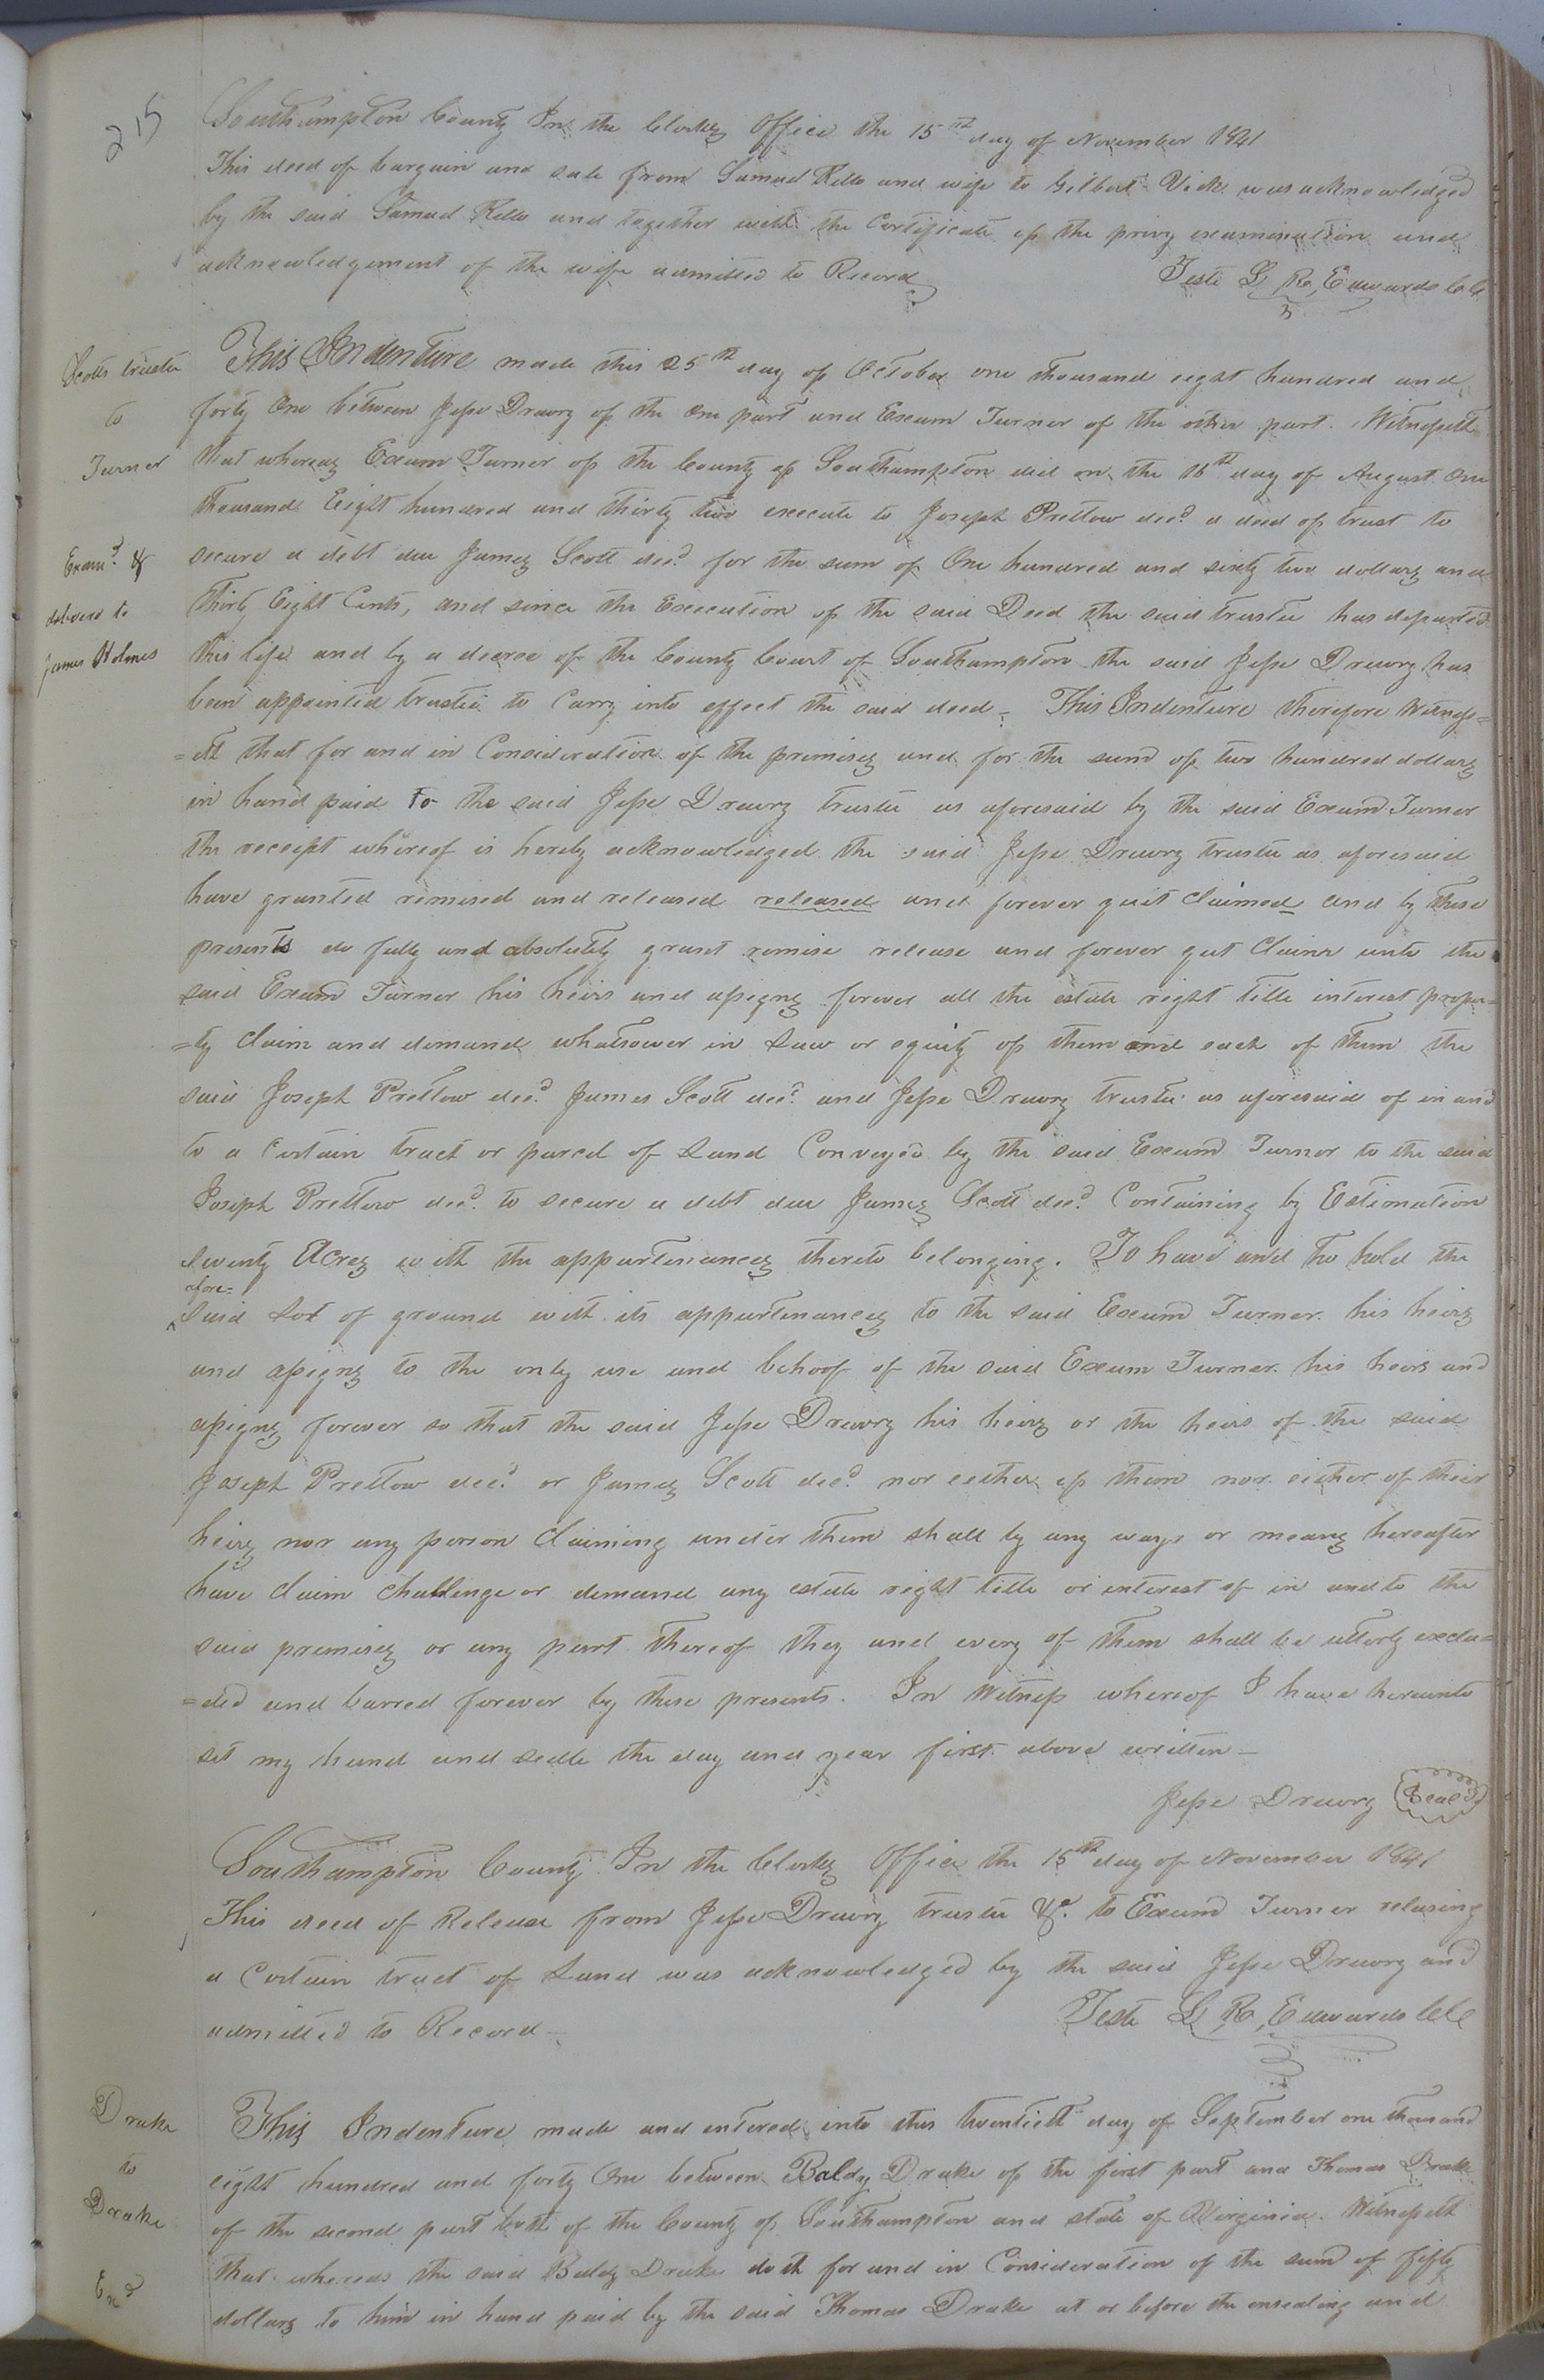 215
Southampton County In the Clerks Office the 15th day of November 1841
This deed of bargain and sale from Samuel Kello and wife to Gilbert Vick was acknowledged
by the said Samuel Kello and together with the Certificate of the privy examination and
acknowledgement of the wife admitted to Record
Teste L R, Edwards ClC
Scotts trustee
to
Turner
Exam.d &
delivered to
James Holmes
This Indenture made this 25th day of October one thousand eight hundred and
forty One between Jesse Drewry of the One part and Exum Turner of the other part. Witnesseth
that whereas Exum Turner of the County of Southampton did on the 16th day of August One
thousand Eight hundred and thirty two execute to Joseph Prettow dec.d a deed of trust to
secure a debt due James Scott dec.d for the sum of One hundred and sixty two dollars and
Thirty Eight Cents, and since the Execution of the said Deed the said trustee has departed
this life and by a decree of the County Court of Southampton the said Jesse Drewry has
been appointed trustee to Carry into effect the said deed - This Indenture therefore Witness=
=eth that for and in Consideration of the premises and for the sum of two hundred dollars
in hand paid to the said Jesse Drewry trustee as aforesaid by the said Exum Turner
the receipt whereof is hereby acknowledged the said Jesse Drewry trustee as aforesaid
have granted remised and released released and forever quit claimed and by these
presents do fully and absolutely grant remise release and forever qut Claim unto the
said Exum Turner his heirs and assigns forever all the estate right title interest proper=
=ty Claim and demand whatsoever in Law or equity of them and each of them the
said Joseph Prettow dec.d James Scott dec.d and Jesse Drewry trustee as aforesaid of in and
to a Certain tract or parcel of Land Conveyed by the said Exum Turner to the said
Joseph Prettow dec.d to secure a debt due James Scott dec.d Containing by Estimation
Acres with the appurtenances thereto belonging. To have and to hold the
afore=
said Lot of ground with its appurtenances to the said Exum Turner his heirs
and assigns to the only use and behoof of the said Exum Turner his heirs and
assigns forever so that the said Jesse Drewry his heirs or the heirs of the said
Joseph Prettow dec.d or James Scott dec.d nor either of them nor either of their
heirs nor any person Claiming under them shall by any ways or means hereafter
have claim challenge or demand any estate right title or interest of in and to the
said premises or any part thereof they and every of them shall be utterly exclu=
=ded and barred forever by these presents. In Witness whereof I have hereunto
set my hand and seale the day and year first above written -
Jesse Drewry Seal
Southampton County In the Clerks Office the 15th day of November 1841
This deed of Release from Jesse Drewry trustee &c. to Exum Turner relasing
a Certain tract of Land was acknowledged by the said Jesse Drewry and
admitted to Record -
Teste L R, Edwards ClC
Drake
to
Drake
Exd
This Indenture made and entered into this twentieth day of September one thousand
eight hundred and forty One between Baldy Drake of the first part and Thomas Drake
of the second part both of the County of Southampton and state of Virginia. Witnesseth
that whereas the said Baldy Drake doth for and in Consideration of the sum of fifty
dollars to him in hand paid by the said Thomas Drake at or before the ensealing and